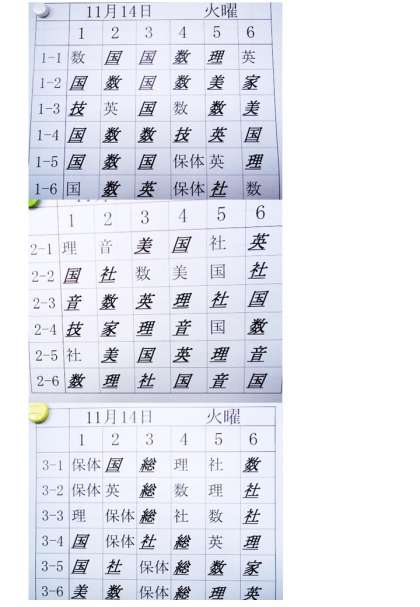 11月14日 火曜
1 2 3 4 5 6
1-1 数 国 国 数 理 英
1-2 国 数 国 数 美 家
1-3 技 英 国 数 数 美
1-4 国 数 数 技 英 国
1-5 国 数 国 保体 英 理
1-6 国 数 英 保体 社 数
1 2 3 4 5 6
2-1 理 音 美 国 社 英
2-2 国 社 数 美 国 社
2-3 音 数 英 理 社 国
2-4 技 家 理 音 国 数
2-5 社 美 国 英 理 音
2-6 数 理 社 国 音 国
11月14日 火曜
1 2 3 4 5 6
3-1 保体 国 総 理 社 数
3-2 保体 英 総 数 理 社
3-3 理 保体 総 社 数 社
3-4 国 保体 社 総 英 理
3-5 国 社 保体 総 数 家
3-6 美 数 保体 総 理 英